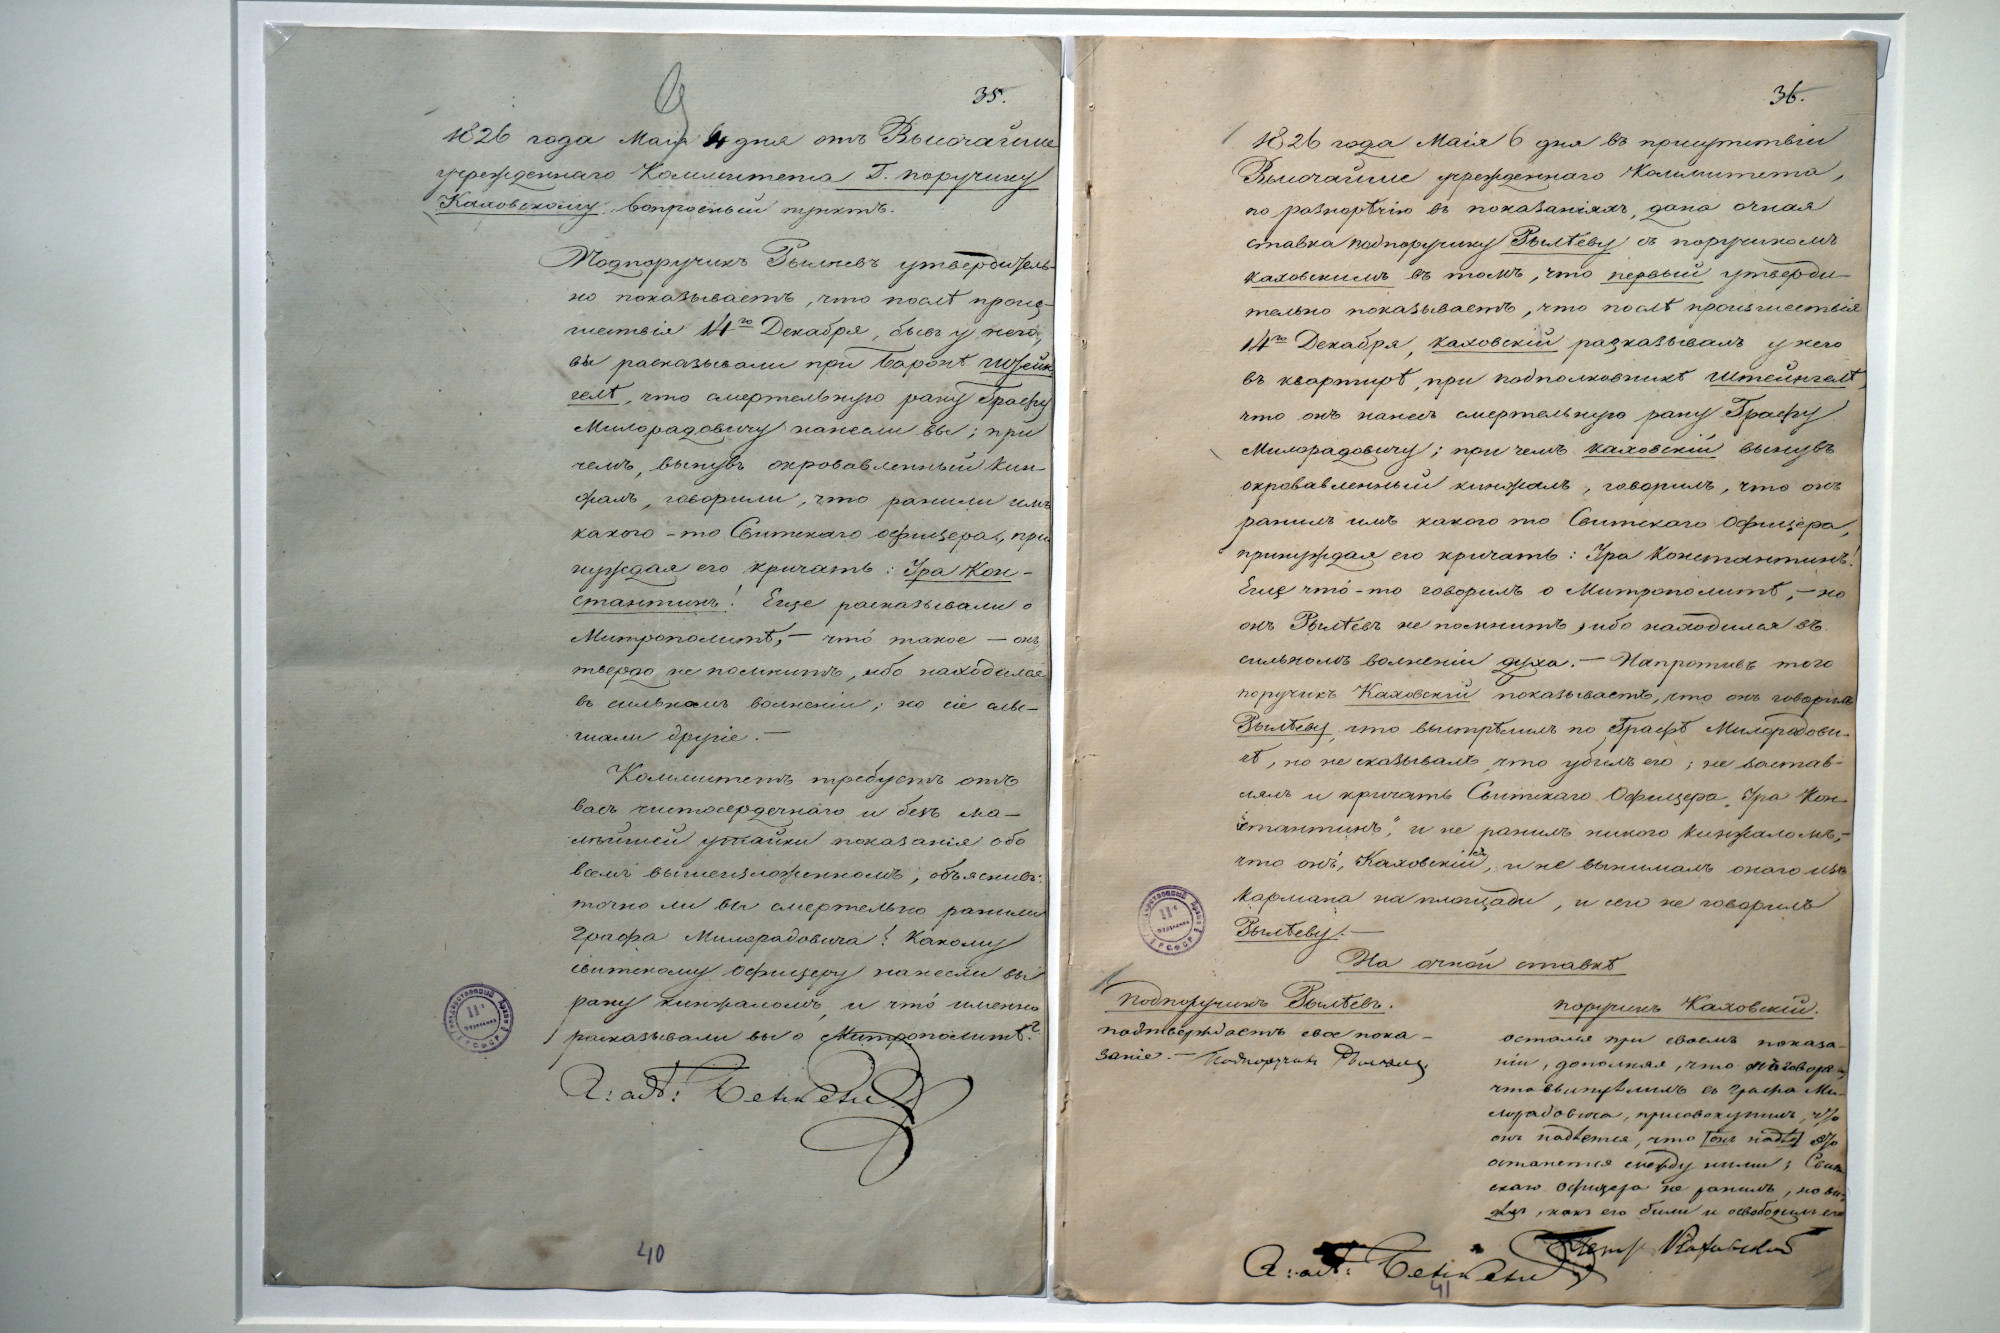 35.
1826 года Маія 4 дня отъ Высочайше
учрежденнаго Коммитета Г. поручику
Каховскому вопросный пунктъ.
Подпоручикъ Рылѣевъ утвердитель-
но показываетъ, что послѣ произ-
шествія 14го Декабря, бывъ у него,
вы расказывали при Баронѣ Штейн-
гелѣ, что смертельную рану Графу
Милорадовичу нанесли вы; при
чемъ, вынувъ окровавленный кин-
жалъ, говорили, что ранили имъ
какого-то Свитскаго офицера, при-
нуждая его кричать: Ура Кон-
стантинъ! Еще расказывали о
Митрополитѣ, — что́ такое — онъ
твердо не помнитъ, ибо находился
въ сильномъ волненіи; но сіе слы-
шали другіе. —
Коммитетъ требуетъ отъ
васъ чистосердечнаго и безъ ма-
лѣйшей утайки показанія обо
всемъ вышеизложенномъ, объяснивъ:
точно ли вы смертельно ранили
Графа Милорадовича? Какому
свитскому офицеру нанесли вы
рану кинжаломъ, и что́ именно
расказывали вы о Митрополитѣ?
А: ад: Бенкендорф
40
36.
1826 года Маія 6 дня въ присутствіи
Высочайше учрежденнаго Коммитета,
по разнорѣчію въ показаніяхъ, дана очная
ставка подпоручику Рылѣеву съ поручикомъ
Каховскимъ въ томъ, что первый утверди-
тельно показываетъ, что послѣ произшествія
14го Декабря, Каховскій разказывалъ у него
въ квартирѣ, при подполковникѣ Штейнгелѣ,
что онъ нанесъ смертельную рану Графу
Милорадовичу; при чемъ Каховскій вынувъ
окровавленный кинжалъ, говорилъ, что онъ
ранилъ имъ какого то Свитскаго Офицера,
принуждая его кричать: Ура Константинъ!
Еще что́-то говорилъ о Митрополитѣ, — но
онъ Рылѣевъ не помнитъ, ибо находился въ
сильномъ волненіи духа. — Напротивъ того
поручикъ Каховскій показываетъ, что онъ говорилъ
Рылѣеву, что выстрѣлилъ по Графѣ Милорадови-
чѣ, но не сказывалъ, что убилъ его; не застав-
лялъ и кричать Свитскаго Офицера „Ура Кон-
стантинъ", и не ранилъ никого кинжаломъ, —
что онъ, Каховскій, и не вынималъ онаго изъ
кармана на площади, и сего не говорилъ
Рылѣеву. —
На очной ставкѣ
Подпоручикъ Рылѣевъ.
подтверждаетъ свое пока-
заніе. — Подпоручик Рылеев
поручикъ Каховскій.
остался при своемъ показа-
ніи, дополняя, что
что выстрѣлилъ въ Графа Ми-
лорадовича, присовокупилъ, что
онъ надѣется, что [онъ надѣ] это
останется между ними; Свит-
скаго офицера не ранилъ, но ви-
дѣлъ, какъ его били и освободилъ его
Петр Каховской
А: ад: Бенкендорф
41